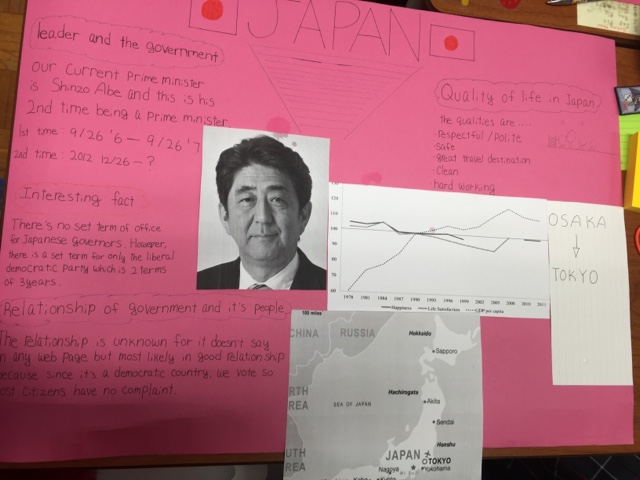 JAPAN
leader and the government
our Current Prime minister
is Shinzo Abe and this is his
2nd time being a prime minister
1st time 9/26 '6 - 9/26 '7
2nd time : 2012 12/26 - ?
Interesting fact
There's no set term of office
for Japanese governors. However,
there is a set term for only the liberal
democratic Party which is 2 terms
of 3 years.
Relationship of government and it's people
The relationship is unknown for it doesn't say
in any web page but most likely in good relationship
because, since it's a democratic country, we vote so
most Citizens have no complaint.
Quality of life in Japan
the qualities are....
·respectful / Polite
·safe
·great travel destination
·Clean
·hard working
120
110
100
90
80
70
60
1978 1981 1984 1987 1990 1993 1996 1999 2002 2005 2008 2011
Happiness Life Satisfaction GDP per capita
OSAKA
↓
TOKYO
100 miles
CHINA
RUSSIA
Hokkaido
Sapporo
Hachirogata
Akita
SEA OF JAPAN
RTH
REA
Sendai
Honshu
UTH
REA
JAPAN
TOKYO
Nagoya
Yokohama
Kyoto